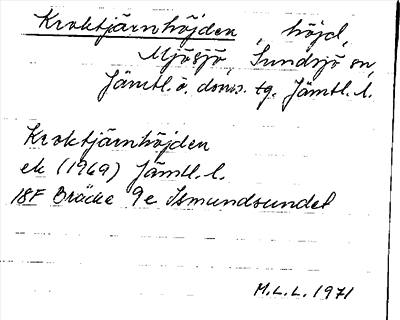 Kroktjärnhöjden, höjd,
Mjösjö, Sundsjö sn,
Jämtl. ö. doms. tg. Jämtl. l.
Kroktjärnhöjden
ek (1969) Jämtl. l.
18F Bräcke 9e Ismundsundet
M.L.L. 1971